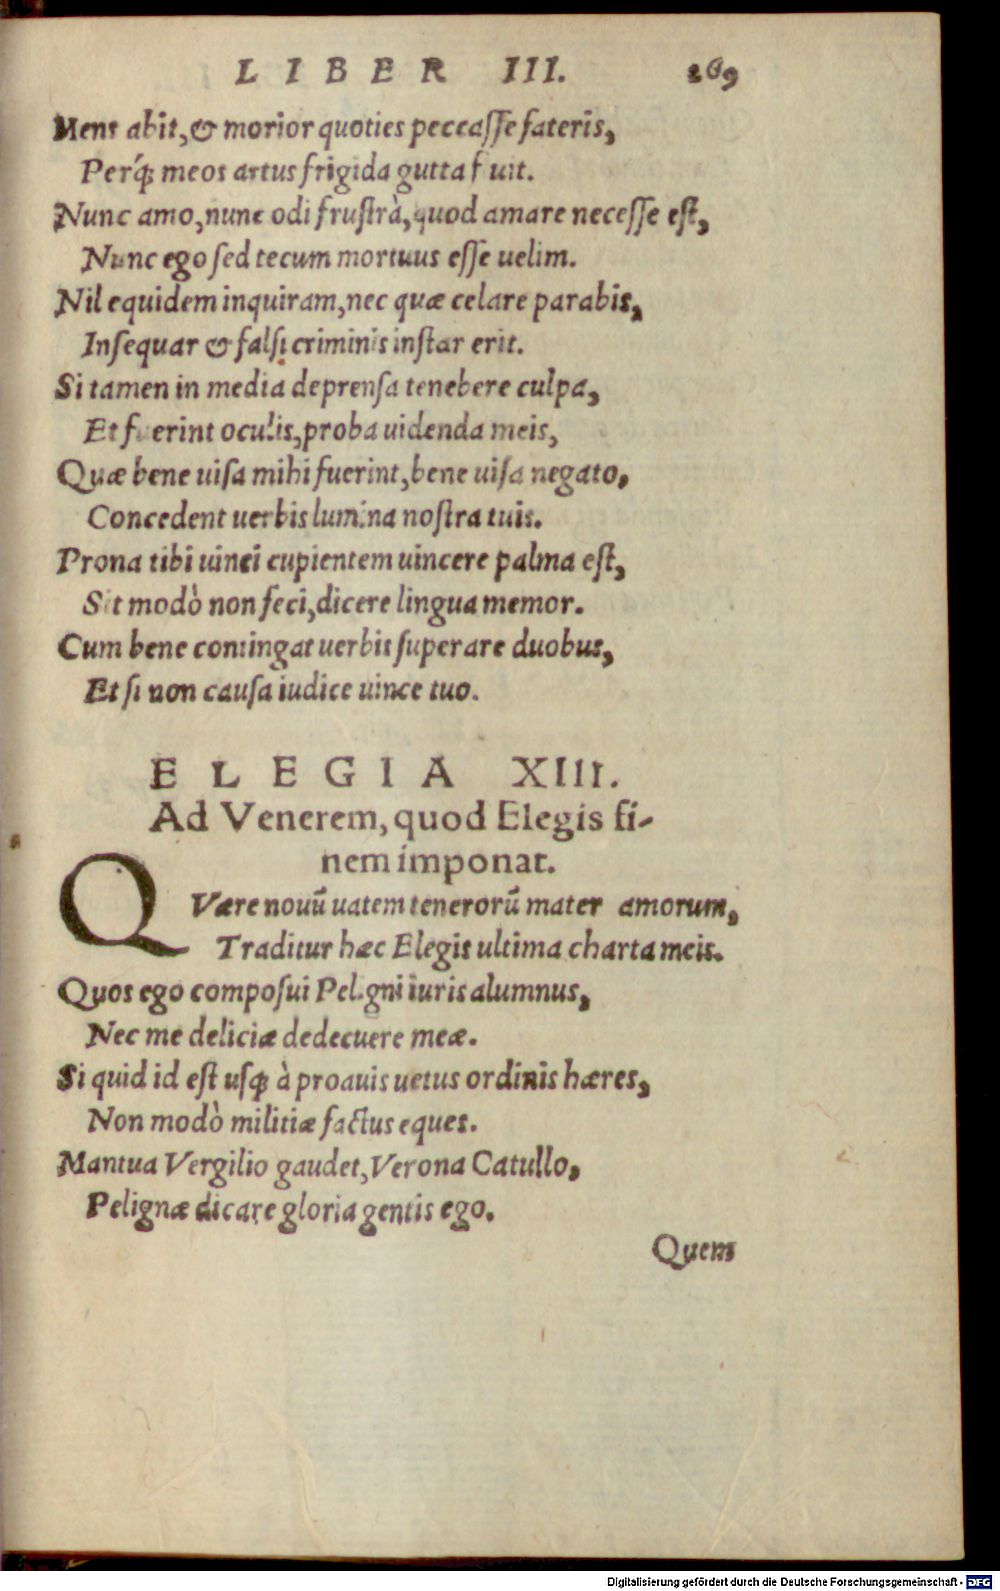 LIBER III. 269
Mens abit, & morior quoties peccasse fateris,
Perq́; meos artus frigida gutta fluit.
Nunc amo, nunc odi frustrà, quod amare necesse est,
Nunc ego sed tecum mortuus esse uelim.
Nil equidem inquiram, nec quæ celare parabis,
Insequar & falsi criminis instar erit.
Si tamen in media deprensa tenebere culpa,
Et fuerint oculis, proba uidenda meis,
Quæ bene uisa mihi fuerint, bene uisa negato,
Concedent uerbis lumina nostra tuis.
Prona tibi uinci cupientem uincere palma est,
Sit modò non feci, dicere lingua memor.
Cum bene contingat uerbis superare duobus,
Et si non causa iudice uince tuo.
ELEGIA XIII.
Ad Venerem, quod Elegis fi-
nem imponat.
QVære nouũ uatem tenerorũ mater amorum,
Traditur hæc Elegis ultima charta meis.
Quos ego composui Peligni iuris alumnus,
Nec me deliciæ dedecuere meæ.
Si quid id est usq; à proauis uetus ordinis hæres,
Non modò militiæ factus eques.
Mantua Vergilio gaudet, Verona Catullo,
Pelignæ dicare gloria gentis ego.
Quem
Digitalisierung gefördert durch die Deutsche Forschungsgemeinschaft - DFG